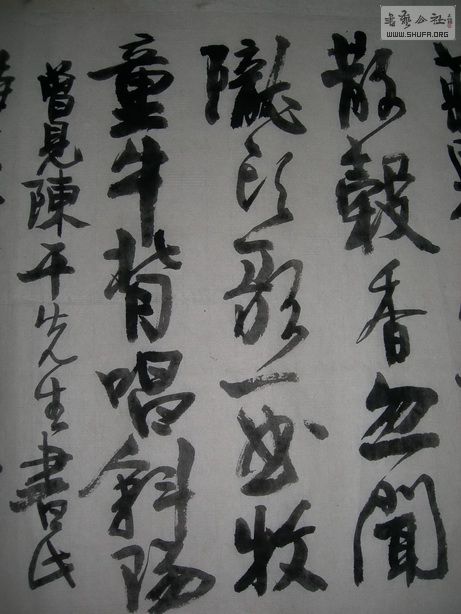 散穀香忽聞
隴頭歌一曲牧
童牛背唱斜陽
曾見陳平先生書此
書艺公社
WWW.SHUFA.ORG